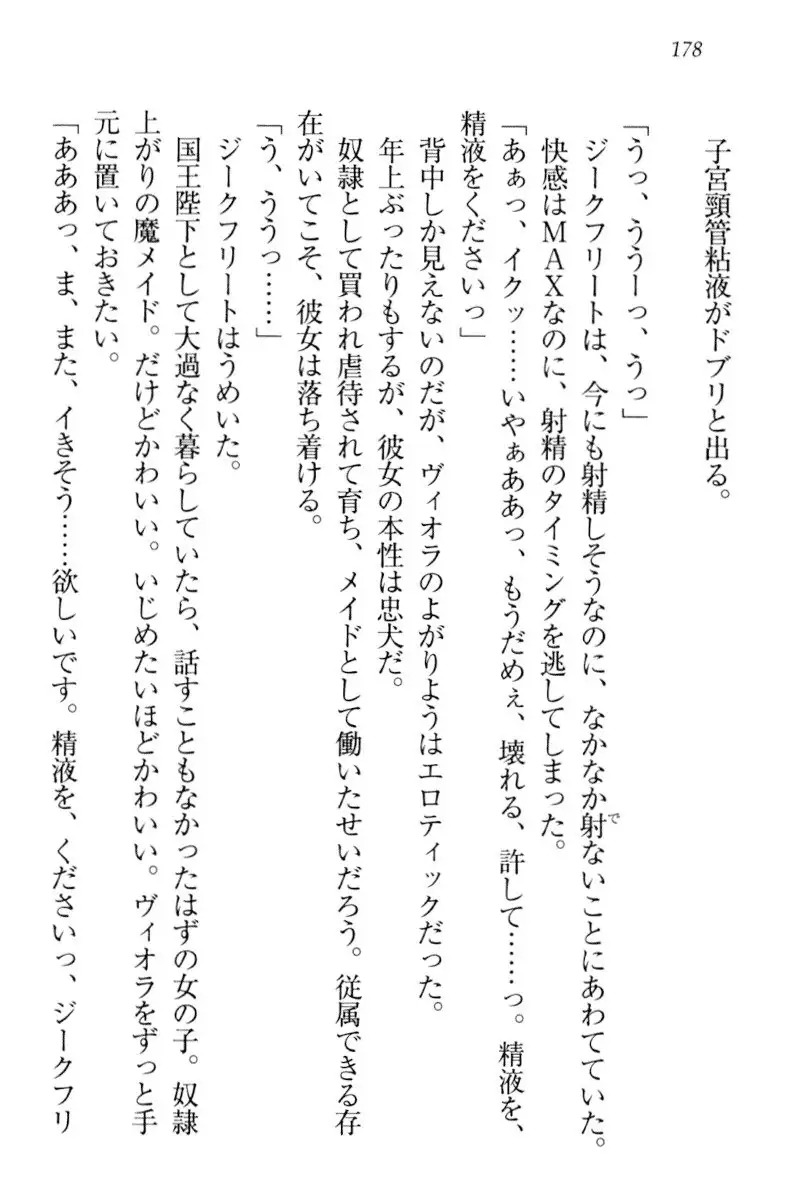 178
子宮頸管粘液がドブリと出る。
「うっ、ううーっ、うっ」
ジークフリートは、今にも射精しそうなのに、なかなか射ないことにあわてていた。
で
快感はMAXなのに、射精のタイミングを逃してしまった。
「あぁっ、イクッ……いやぁああっ、もうだめぇ、壊れる、許して……っ。精液を、
精液をくださいっ」
背中しか見えないのだが、ヴィオラのよがりようはエロティックだった。
年上ぶったりもするが、彼女の本性は忠犬だ。
奴隷として買われ虐待されて育ち、メイドとして働いたせいだろう。従属できる存
在がいてこそ、彼女は落ち着ける。
「う、ううっ……」
ジークフリートはうめいた。
国王陛下として大過なく暮らしていたら、話すこともなかったはずの女の子。奴隷
上がりの魔メイド。だけどかわいい。いじめたいほどかわいい。ヴィオラをずっと手
元に置いておきたい。
「あああっ、ま、また、イきそう……欲しいです。精液を、くださいっ、ジークフリ